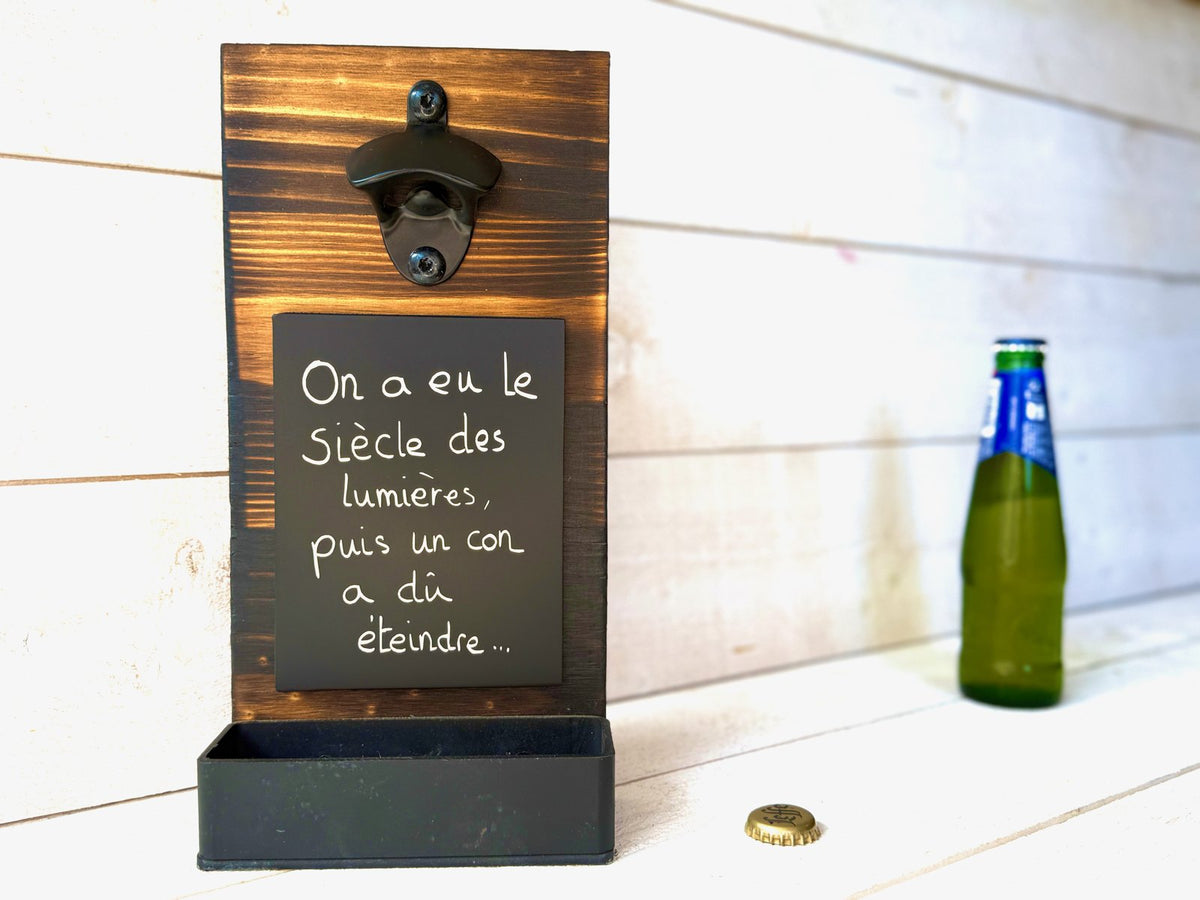 On a eu le
Siècle des
lumières,
puis un con
a dû
éteindre...